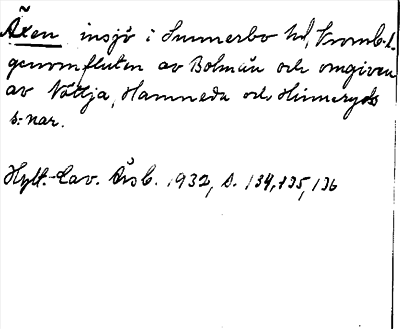 Äxen insjö i Sunnerbo hd, Kronob. l.
genomfluten av Bolmån och omgiven
av Nöttja, Hamneda och Hinneryds
s:nar.
Hylt.-Cav. Årsb. 1932, s. 134, 135, 136